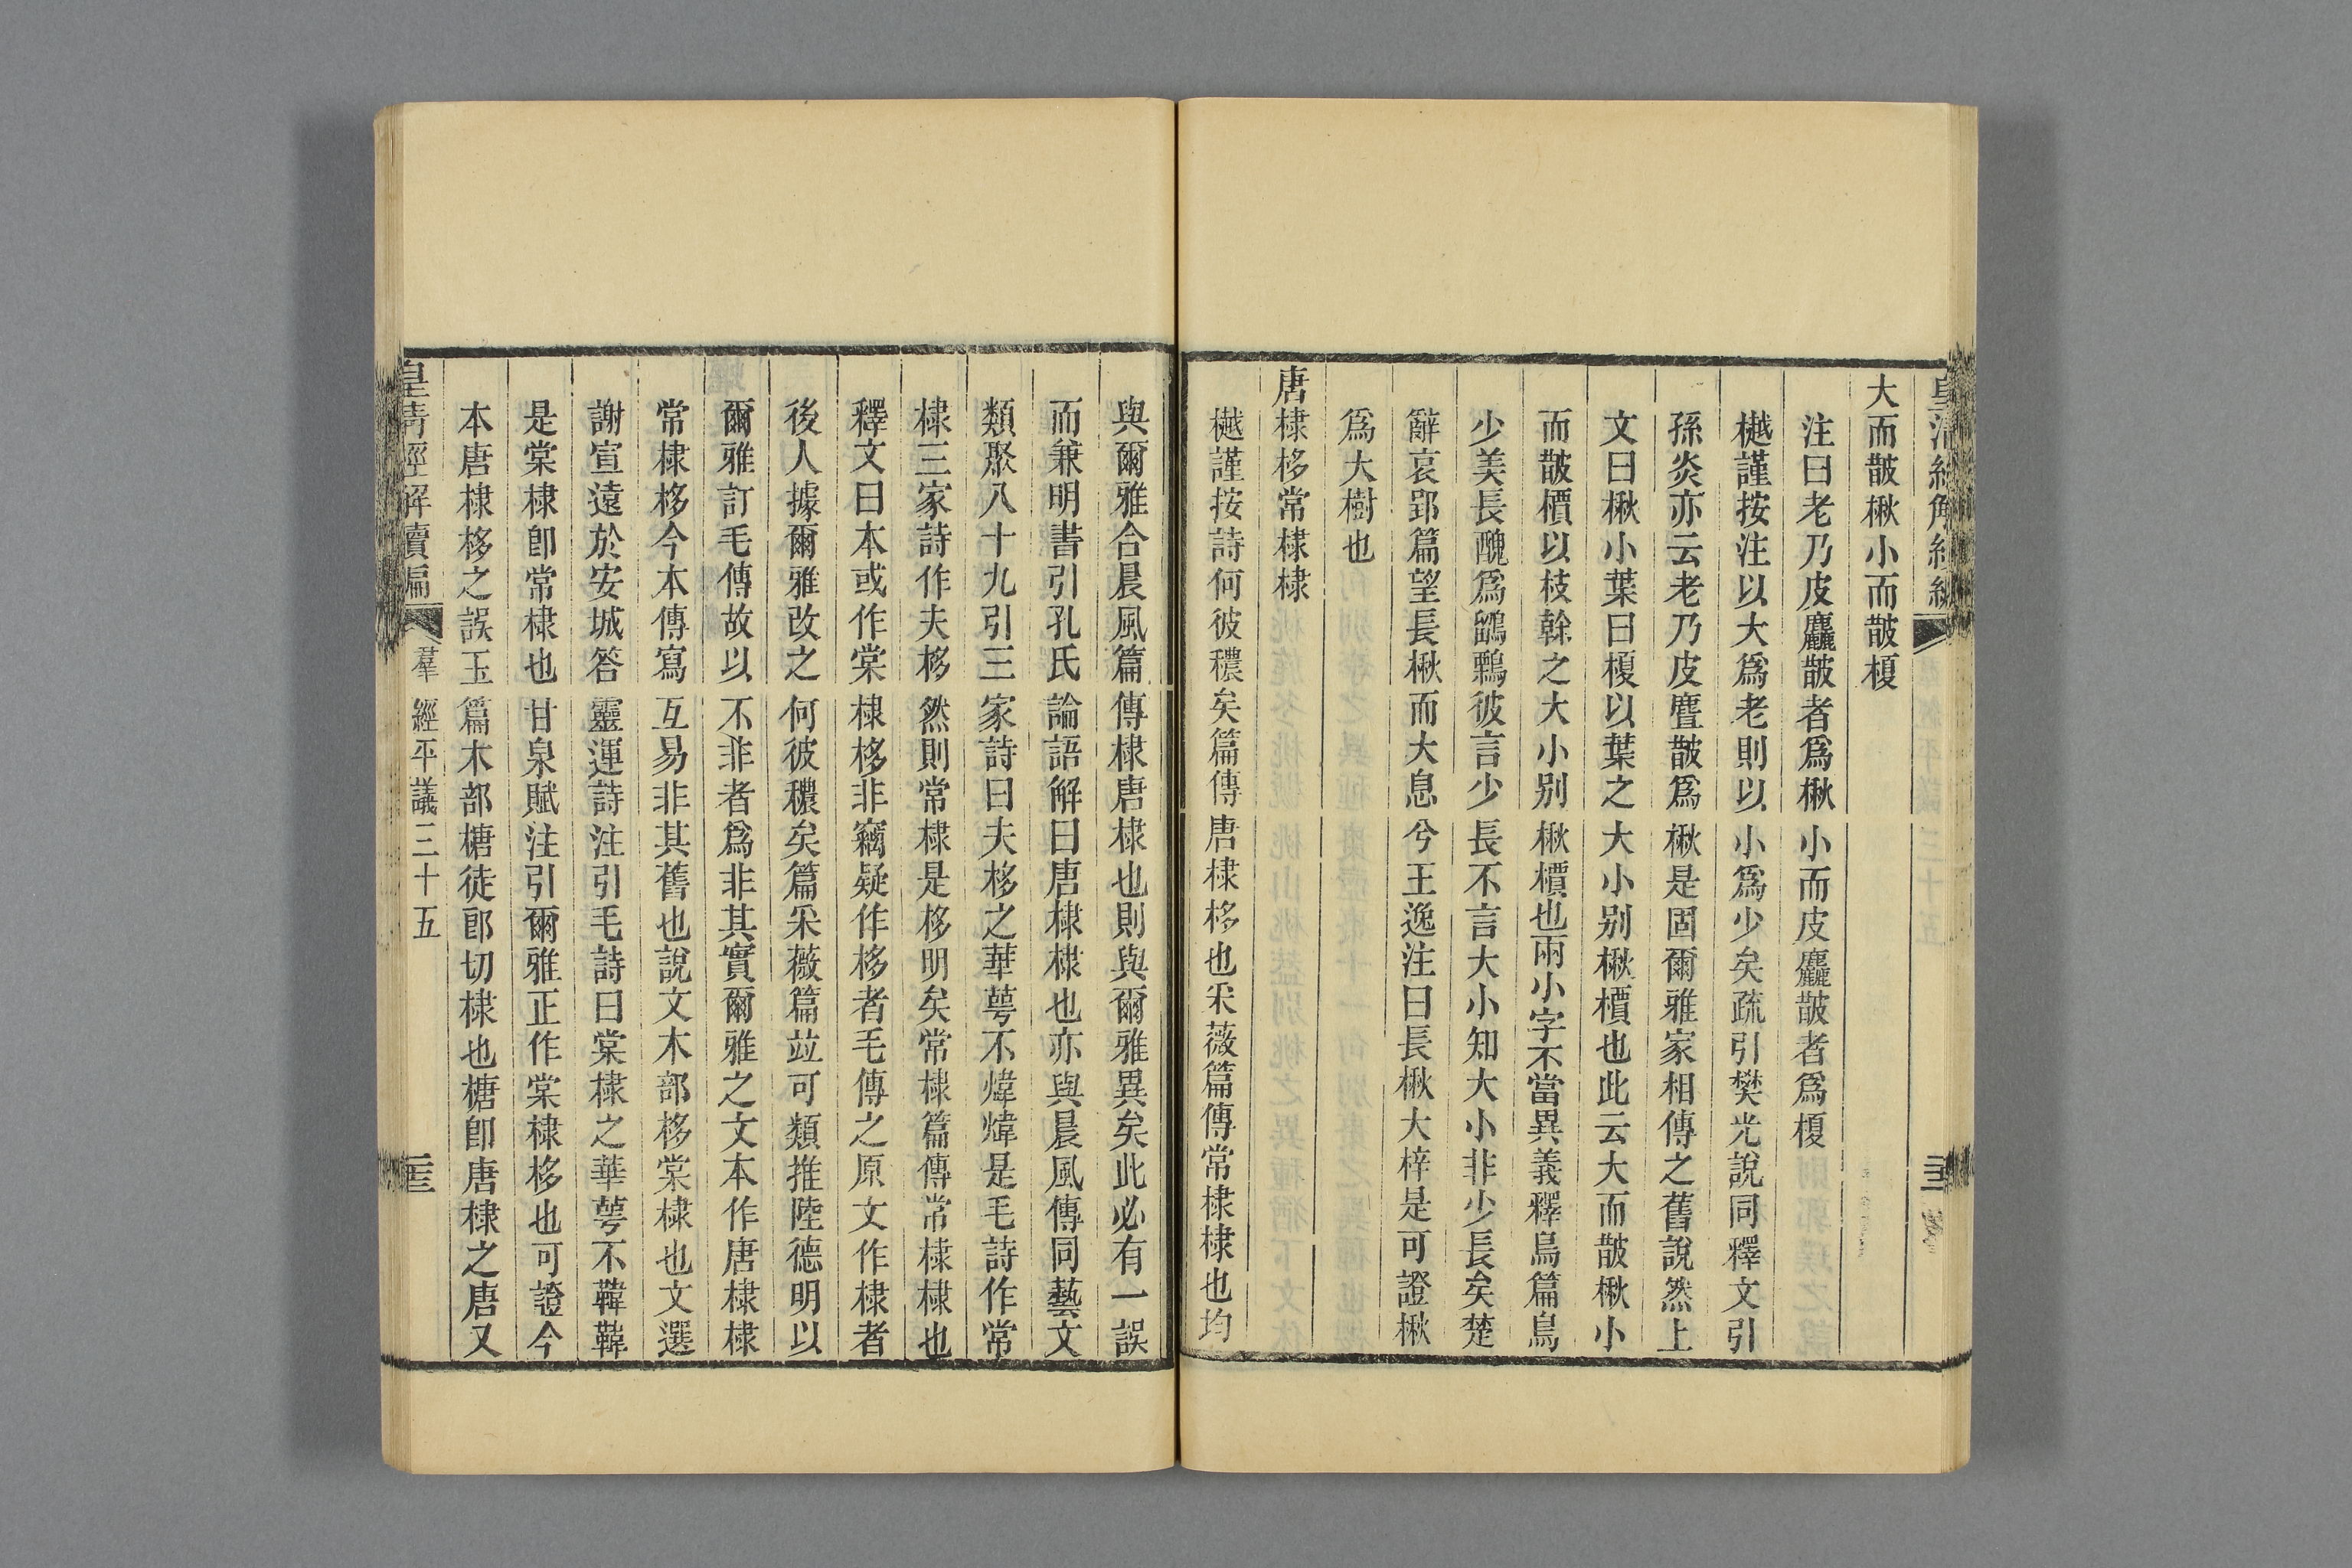 皇清經解續編
大而皵楸小而皵榎
注曰老乃皮麤皵者爲楸小而皮麤皵者爲榎
樾謹按注以大爲老則以小爲少矣疏引樊光說同釋文引
孫炎亦云老乃皮麆皵爲楸是固爾雅家相傳之舊說然上
文曰楸小葉曰榎以葉之大小别楸檟也此云大而皵楸小
而皵檟以枝榦之大小别楸檟也兩小字不當異義釋鳥篇鳥
少美長醜爲鶹鷅彼言少長不言大小知大小非少長矣楚
辭哀郢篇望長楸而大息兮王逸注曰長楸大梓是可證楸
爲大樹也
唐棣栘常棣棣
樾謹按詩何彼穠矣篇傳唐棣栘也采薇篇傳常棣棣也均
與爾雅合晨風篇傳棣唐棣也則與爾雅異矣此必有一誤
而兼明書引孔氏論語解曰唐棣棣也亦與晨風傳同藝文
類聚八十九引三家詩曰夫栘之華萼不煒煒是毛詩作常
棣三家詩作夫栘然則常棣是栘明矣常棣篇傳常棣棣也
釋文曰本或作棠棣栘非竊疑作栘者毛傳之原文作棣者
後人據爾雅改之何彼穠矣篇采薇篇竝可類推陸德明以
爾雅訂毛傳故以不非者爲非其實爾雅之文本作唐棣棣
常棣栘今本傳寫互易非其舊也說文木部栘棠棣也文選
謝宣遠於安城答靈運詩注引毛詩曰棠棣之華萼不韡韡
是棠棣卽常棣也甘泉賦注引爾雅正作棠棣栘也可證今
本唐棣栘之誤玉篇木部榶徒郎切棣也榶卽唐棣之唐又
皇清經解續編 羣經平議三十五